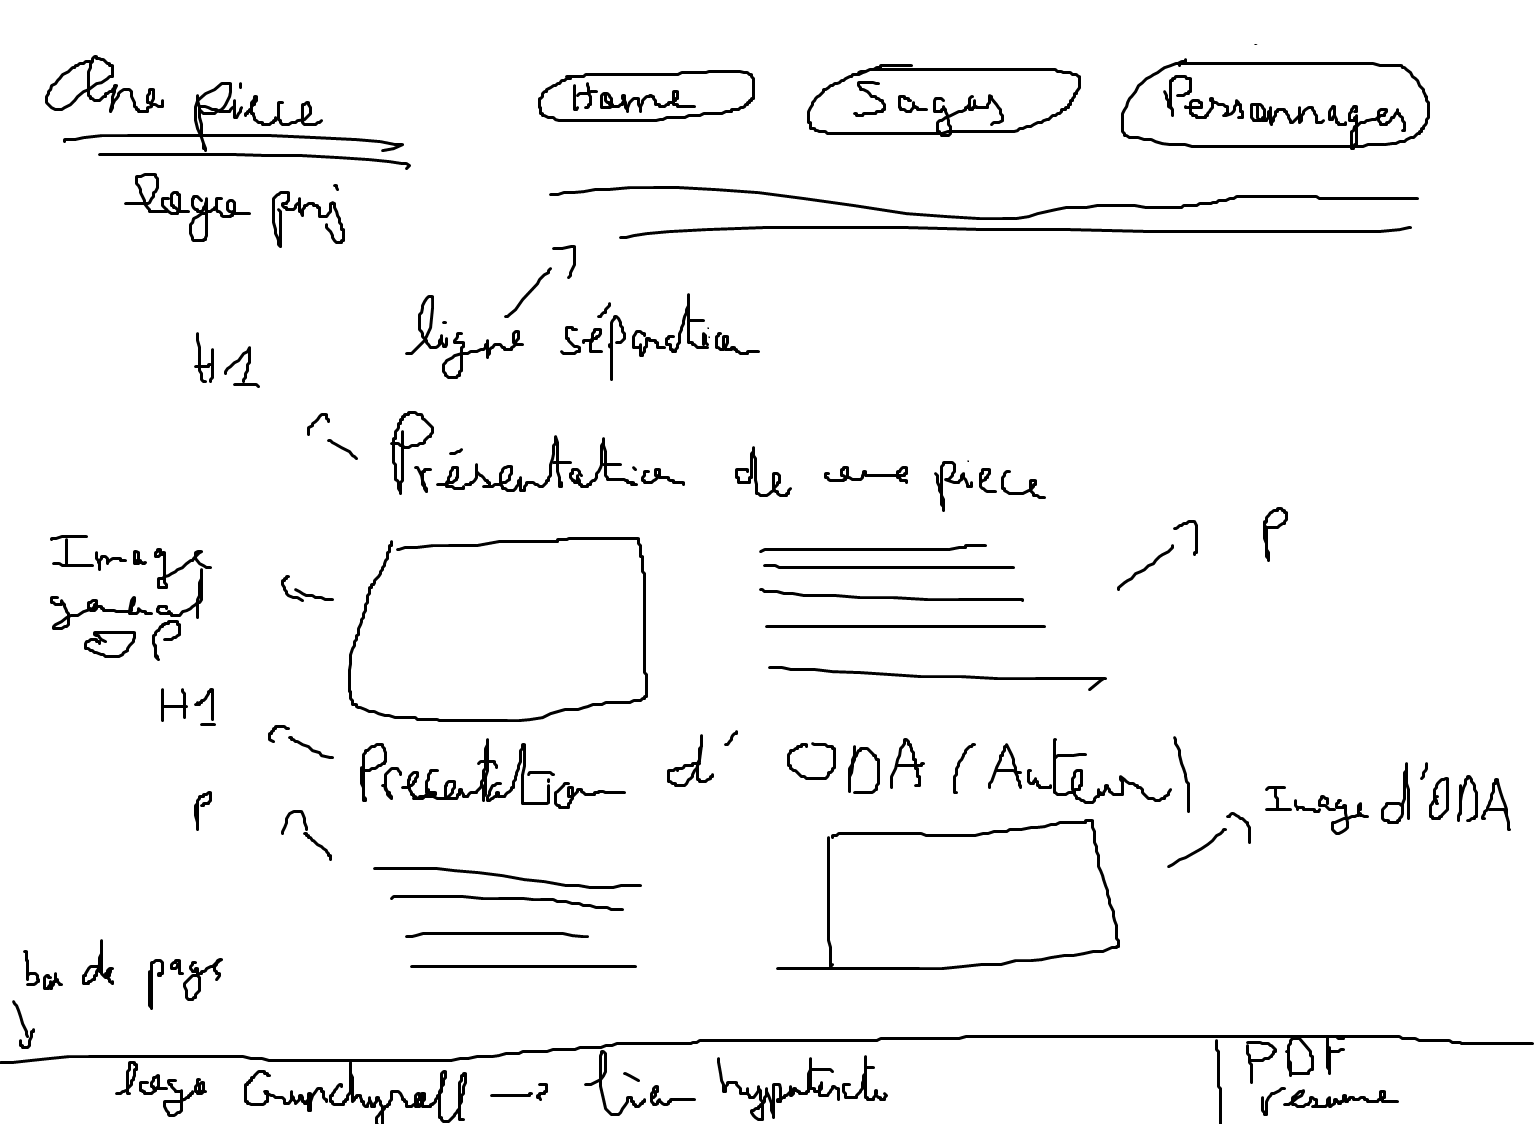 One piece
Home
Sagas
Personnages
logo prj
ligne séparation
H1
Présentation de one piece
Image
general
OP
P
H1
Presentation d' ODA (Auteur)
P
Image d'ODA
ba de page
logo Crunchyroll → lien hypertexte
PDF
resume